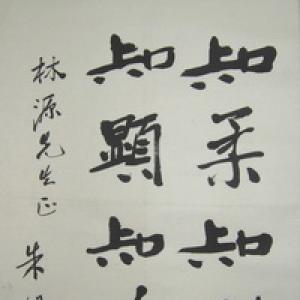 知柔知
知顯知
林源先生正 朱